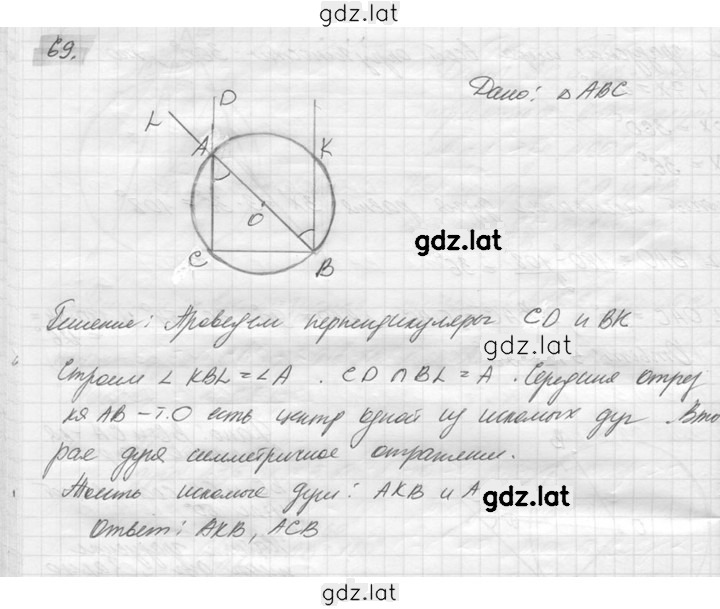 gdz.lat
69.
Дано: △ ABC
D
L
A
K
O
gdz.lat
C
B
Решение: Проведем перпендикуляры CD и BK
Строим ∠ KBL = ∠A . CD ∩ BL = A . Середина отрез
ка AB – т.O есть центр одной из искомых дуг . Вто
рая дуга симметричное отражение.
Значит искомые дуги: AKB и A
gdz.lat
Ответ: AKB, ACB
gdz.lat